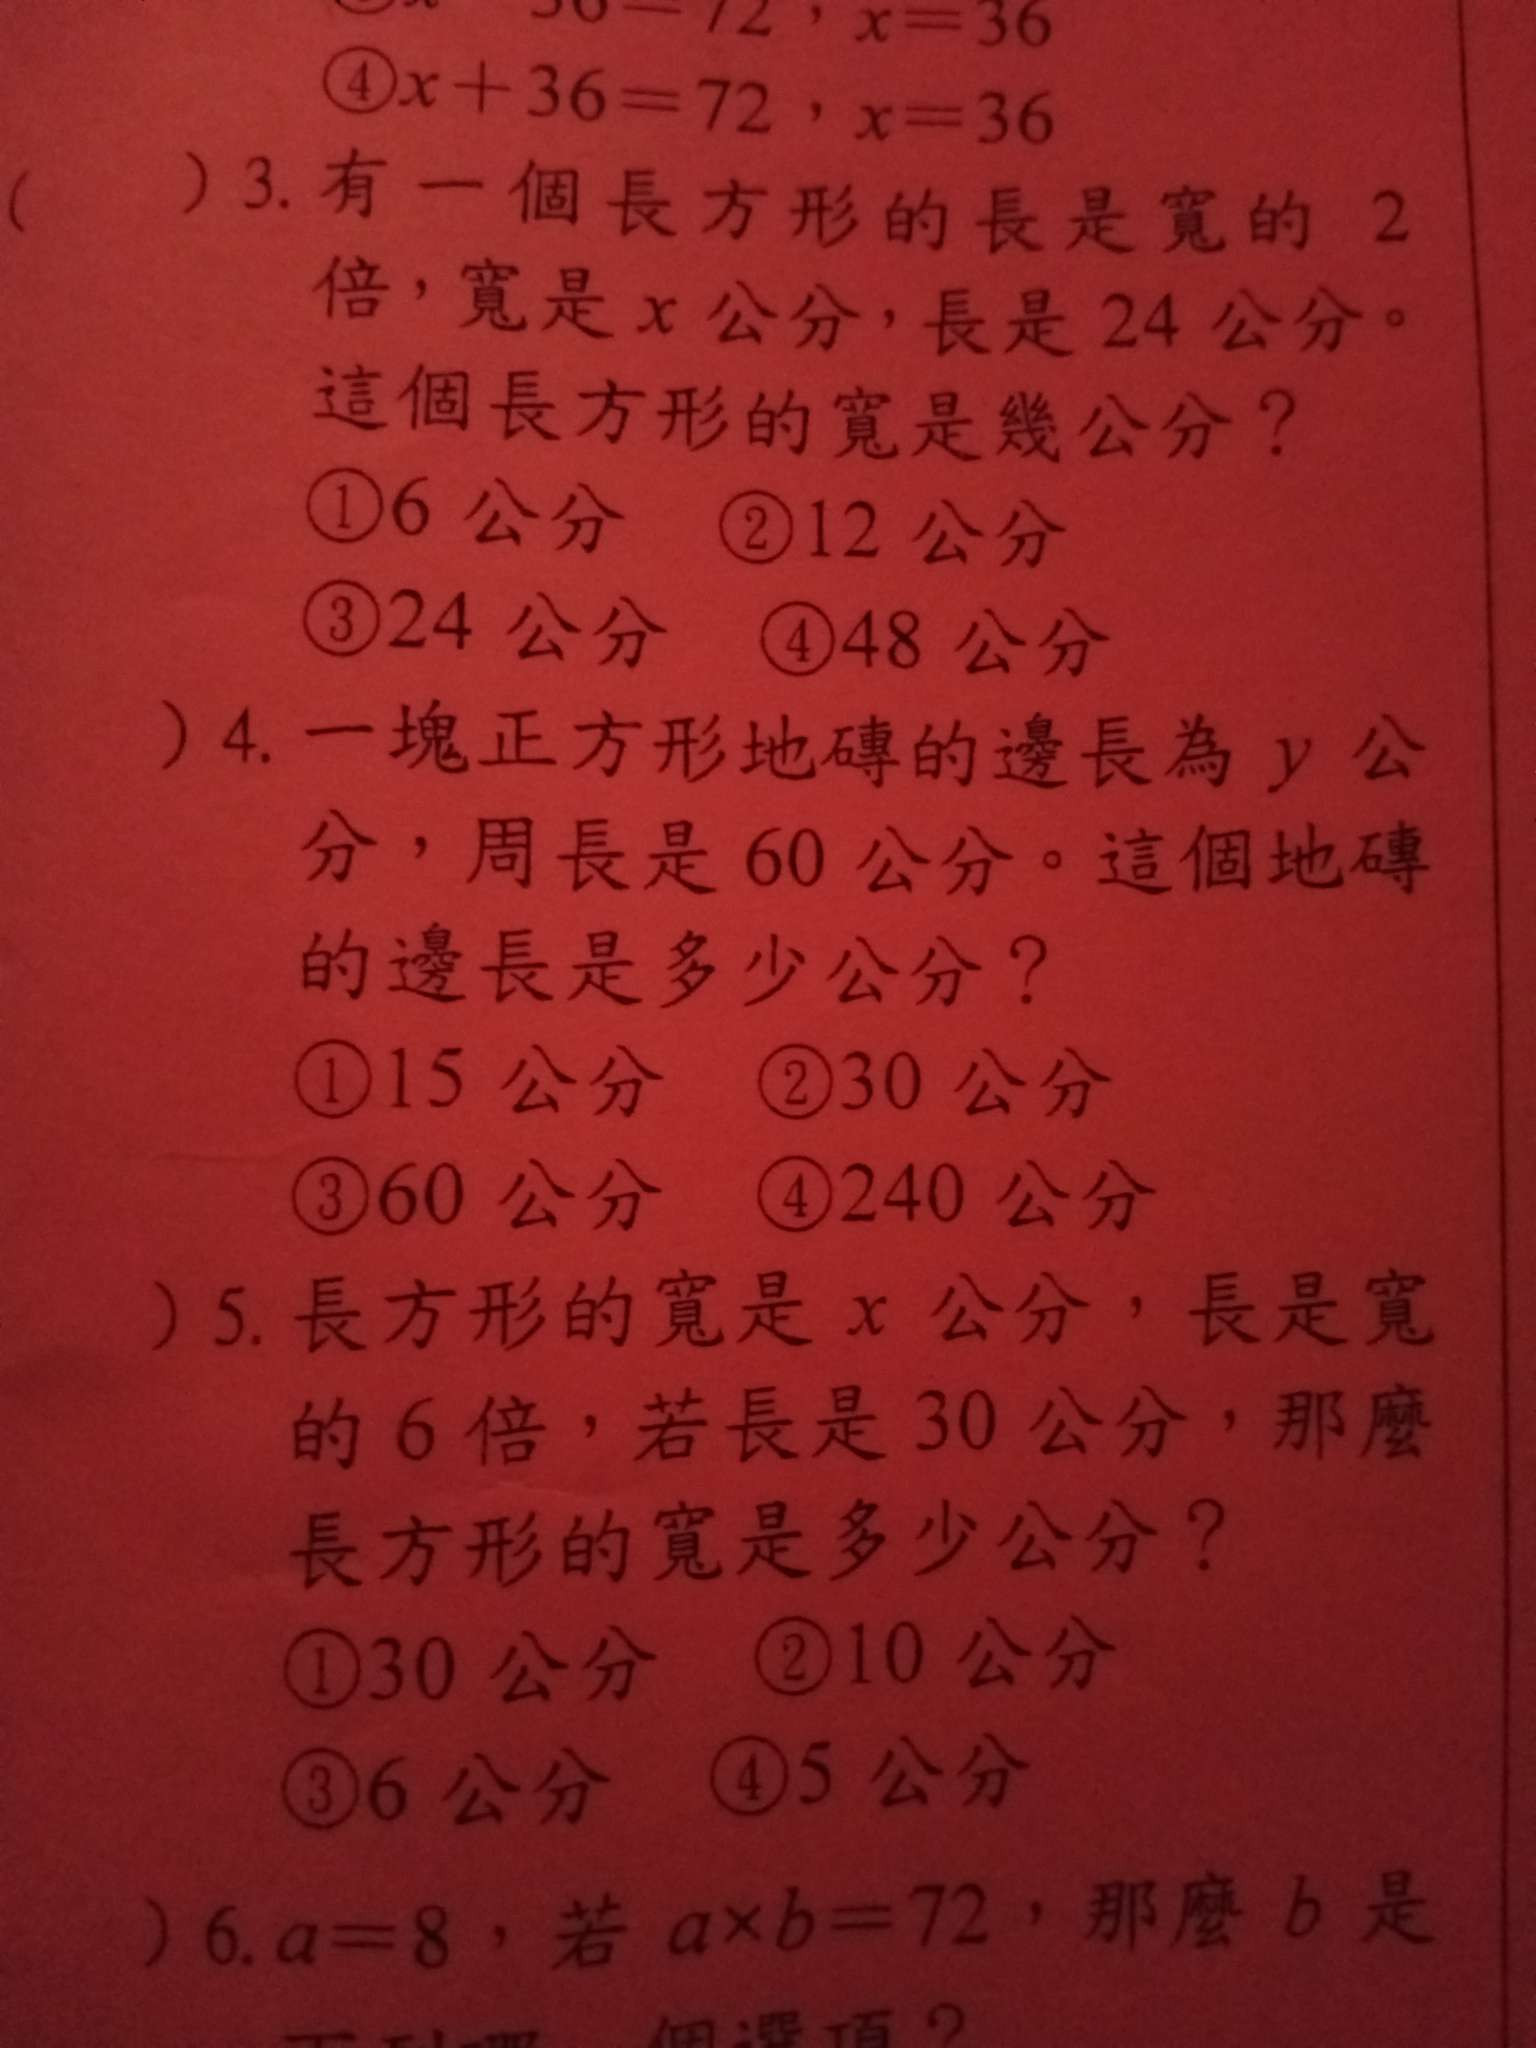 36=72，x=36
④x+36=72，x=36
( )3. 有一個長方形的長是寬的 2
倍，寬是 x 公分，長是 24 公分。
這個長方形的寬是幾公分？
①6 公分 ②12 公分
③24 公分 ④48 公分
)4. 一塊正方形地磚的邊長為 y 公
分，周長是 60 公分。這個地磚
的邊長是多少公分？
①15 公分 ②30 公分
③60 公分 ④240 公分
)5. 長方形的寬是 x 公分，長是寬
的 6 倍，若長是 30 公分，那麼
長方形的寬是多少公分？
①30 公分 ②10 公分
③6 公分 ④5 公分
)6. a=8，若 a×b=72，那麼 b 是
個選項？